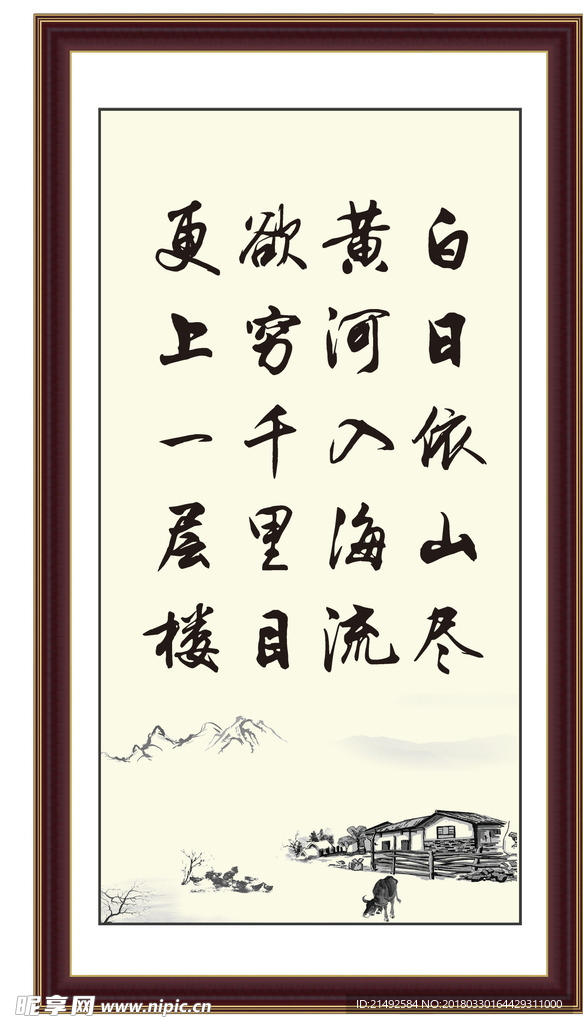 白日依山尽
黄河入海流
欲穷千里目
更上一层楼
昵享网 www.nipic.cn
ID:21492584 NO:20180330164429311000